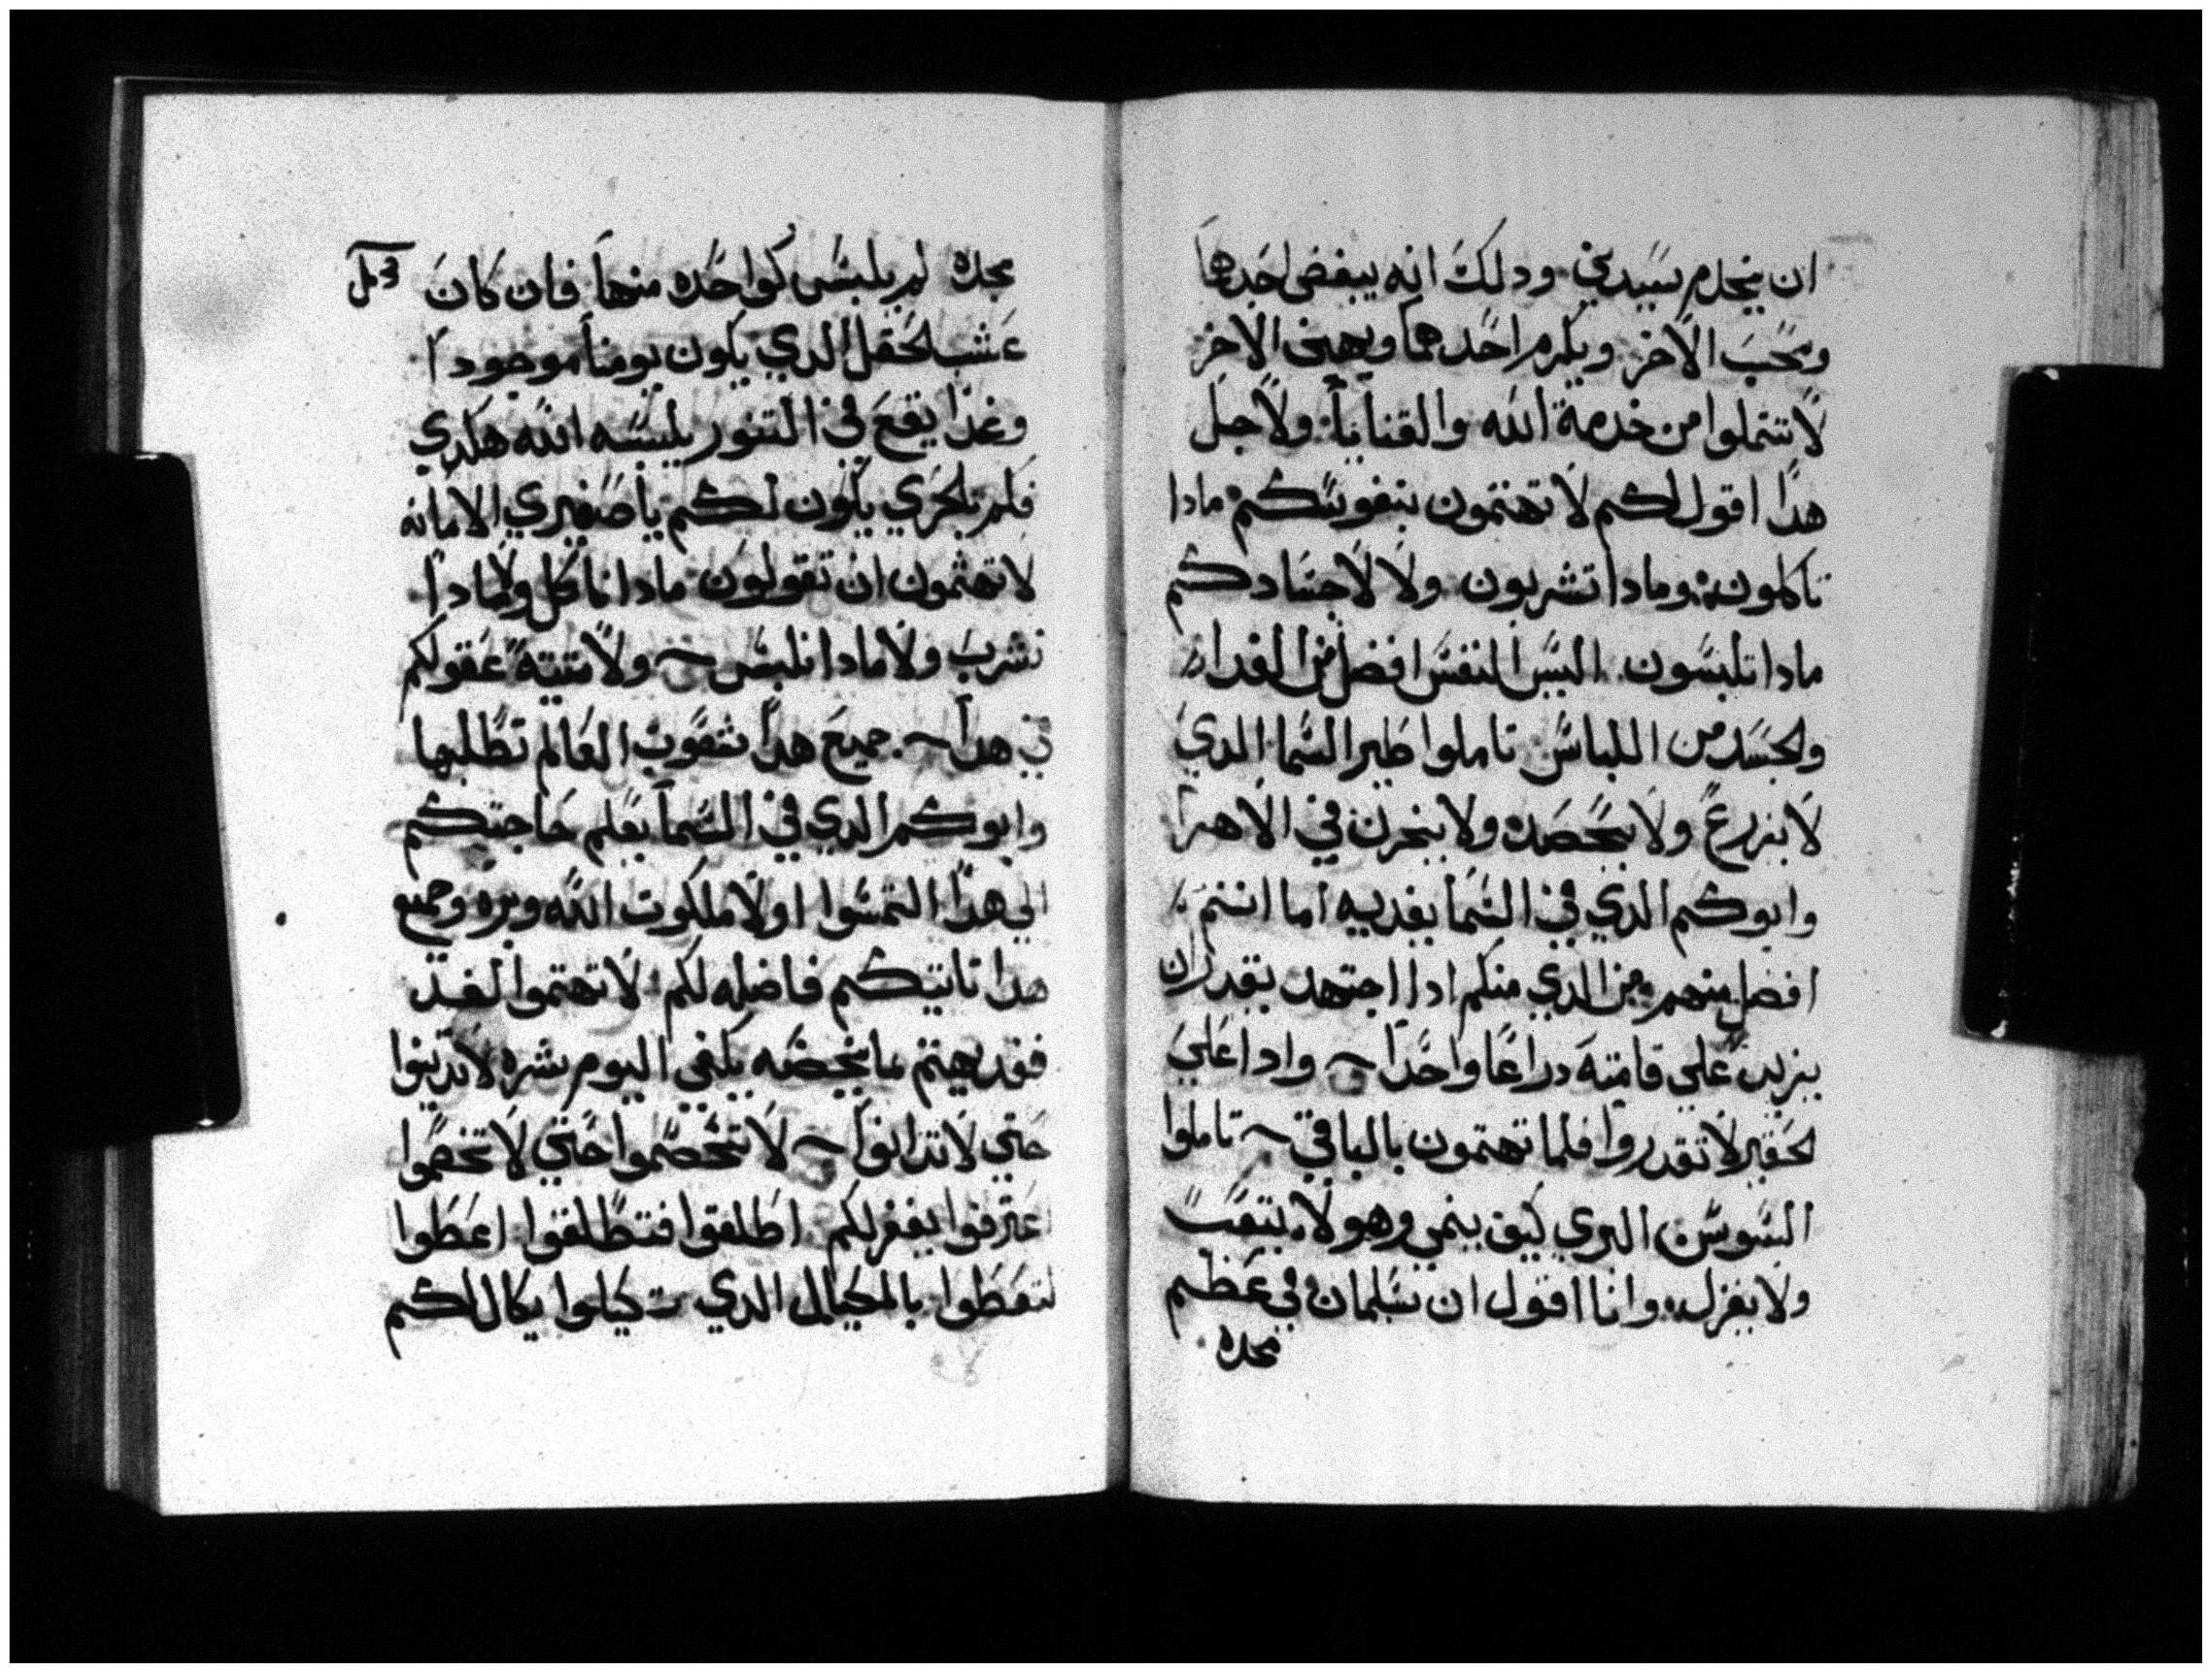 ان يخدم سيدين ودلك انه يبغض احدهما
ويحب الاخر ويكرم احدهما ويهين الاخر
لا تتملوا من خدمة الله والقنايا ولاجل
هدا اقول لكم لا تهتمون بنفوسكم مادا
تاكلون ومادا تشربون ولا لاجسادكم
مادا تلبسون اليس النفس افضل من الغدا
والجسد من اللباس تاملوا طير السما الدي
لا يزرع ولا يحصده ولا يخزن في الاهرا
وابوكم الدي في السما يغديه اما انتم
افضل منهم من الدي منكم ادا اجتهد يقدر ان
يزيد علي قامته دراعا واحدا وادا علي
لحقير لا تقدروا فلما تهتمون بالباقي تاملوا
السوسن البري كيف ينمي وهو لا يتعب
ولا يغزل وانا اقول ان سلمان في عظم
مجده
مجده لم يلبس كواحده منها فان كان
عشب لحقل الدي يكون يومنا موجودا
وغدا يقع في التنور يلبسه الله هكدي
فلم بلحري يكون لكم يا صغيري الامانه
لا تهتمون ان تقولون مادا ناكل ولا مادا
نشرب ولا مادا نلبس ولا تتيه عقولكم
في هدا جميع هدا شعوب العالم تطلبها
وابوكم الدي في السما يعلم حاجتكم
الي هدا التمسوا اولا ملكوت الله وبره وجميع
هدا تاتيكم فاضله لكم لا تهتموا لغد
فغد يهتم ما يخصه يكفي اليوم شره لا تدينوا
حتي لا تدانوا لا تخصموا حتي لا تخصموا
اعترفوا يغفر لكم اطلقوا فتطلقوا اعطوا
لتعطوا بالمكيال الدي تكيلوا يكال لكم